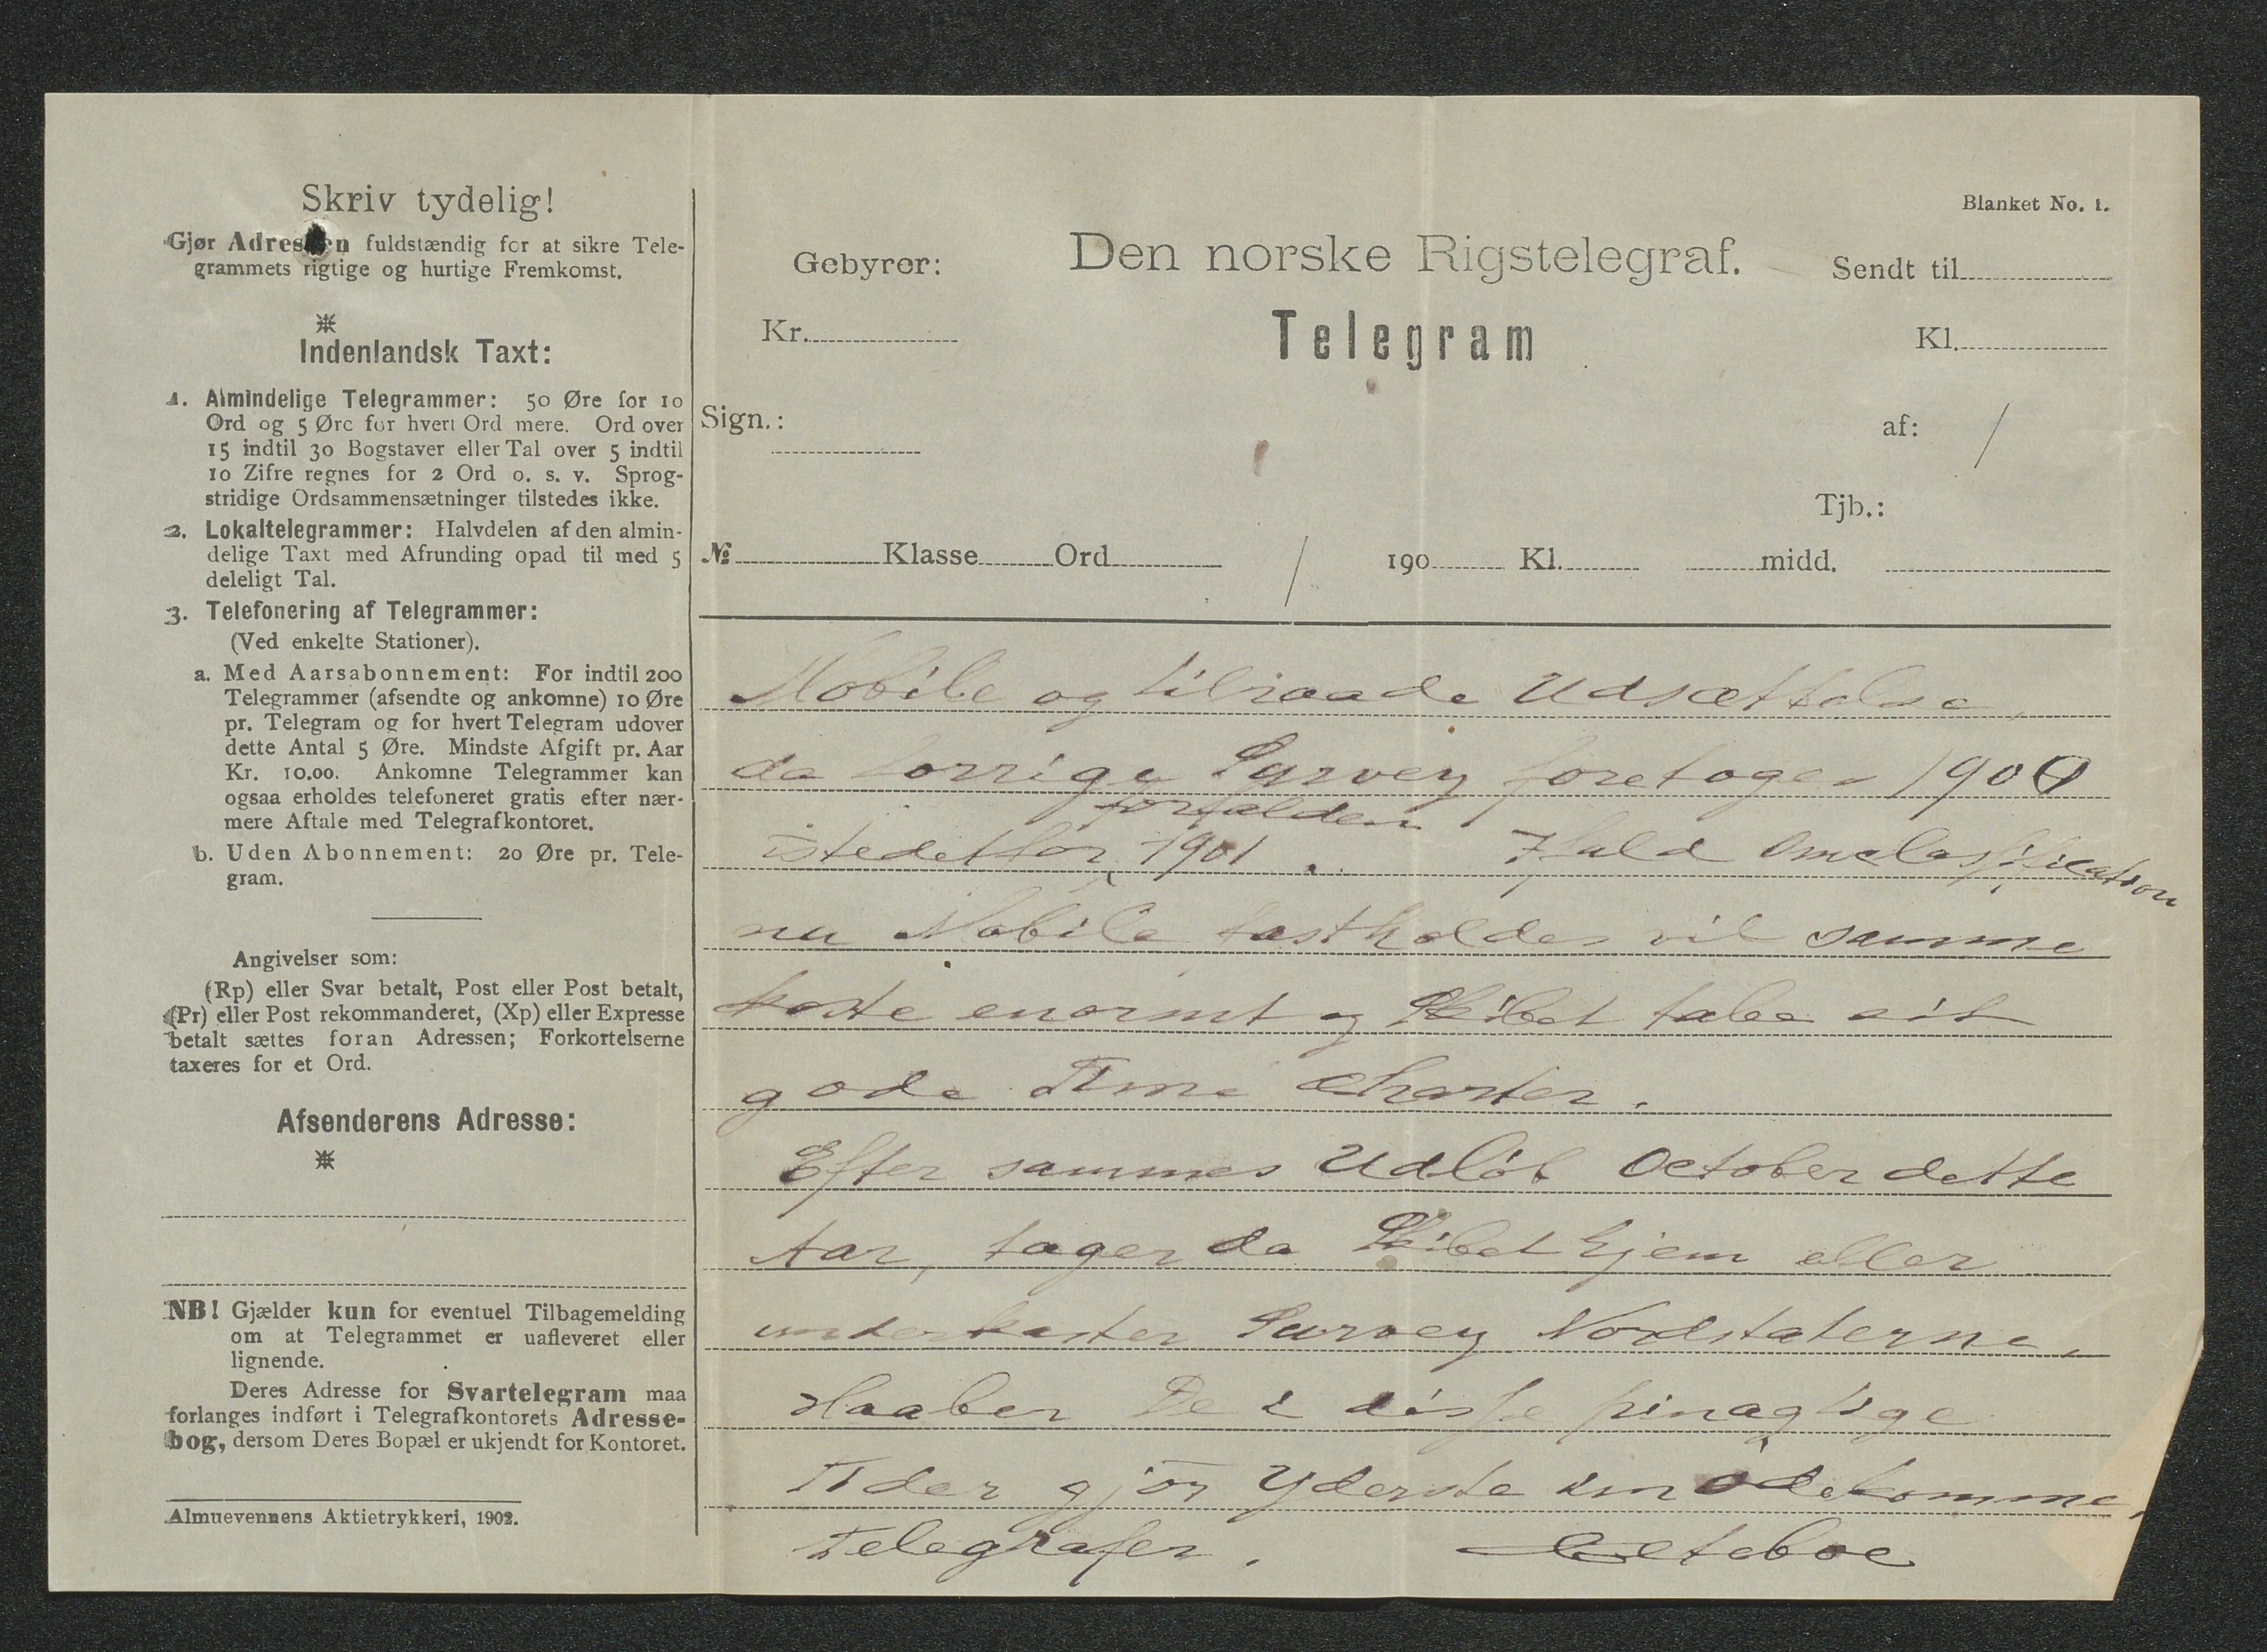 Skriv tydelig!
Gjør Adressen fuldstændig for at sikre Tele-
grammets rigtige og hurtige Fremkomst.
Indenlandsk Taxt:
1. Almindelige Telegrammer: 50 Øre for 10
Ord og 5 Øre for hvert Ord mere. Ord over
15 indtil 30 Bogstaver eller Tal over 5 indtil
10 Zifre regnes for 2 Ord o. s. v. Sprog-
stridige Ordsammensætninger tilstedes ikke.
2. Lokaltelegrammer: Halvdelen af den almin-
delige Taxt med Afrunding opad til med 5
deleligt Tal.
3. Telefonering af Telegrammer:
(Ved enkelte Stationer).
a. Med Aarsabonnement: For indtil 200
Telegrammer (afsendte og ankomne) 10 Øre
pr. Telegram og for hvert Telegram udover
dette Antal 5 Øre. Mindste Afgift pr. Aar
Kr. 10.00. Ankomne Telegrammer kan
ogsaa erholdes telefoneret gratis efter nær-
mere Aftale med Telegrafkontoret.
b. Uden Abonnement: 20 Øre pr. Tele-
gram.
Angivelser som:
(Rp) eller Svar betalt, Post eller Post betalt,
(Pr) eller Post rekommanderet, (Xp) eller Expresse
betalt sættes foran Adressen; Forkortelserne
taxeres for et Ord.
Afsenderens Adresse:
NB! Gjælder kun for eventuel Tilbagemelding
om at Telegrammet er uafleveret eller
lignende.
Deres Adresse for Svartelegram maa
forlanges indført i Telegrafkontorets Adresse-
bog, dersom Deres Bopæl er ukjendt for Kontoret.
Almuevennens Aktietrykkeri, 1902.
Blanket No. 1.
Gebyrer:
Den norske Rigstelegraf.
Sendt til
Kr.
Telegram
Kl.
Sign.:
af: /
Tjb.:
№ Klasse Ord / 190 Kl. midd.
Mobile og tilraade Udsættelse,
da forrige Survey foretoges 1900
forfalden
istedetfor 1901. Ifald Omclassification
nu Mobile fastholdes vil samme
koste enormt og Skibet tabe sit
gode Time Charter.
Efter sammes Udløb October dette
Aar, tager da Skibet hjem eller
underkaster Survey Nordstaterne,
Haaber De i disse pinagtige
Tider gjør Yderste imødekomme,
Telegrafer.